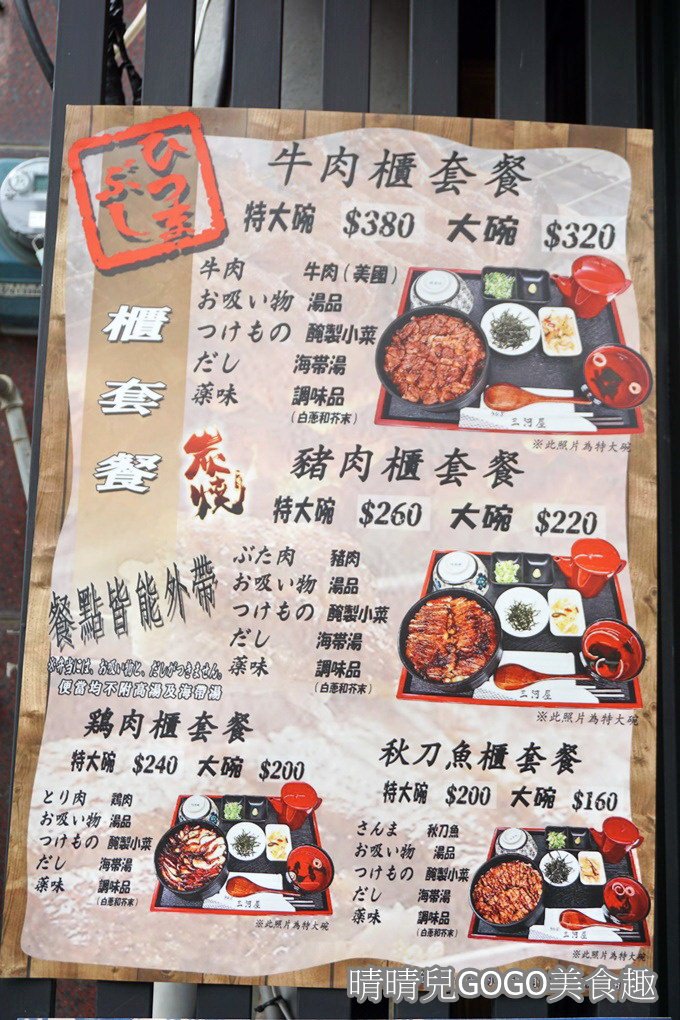 ひつまぶし
櫃套餐
炭燒
牛肉櫃套餐
特大碗 $380 大碗 $320
牛肉 牛肉(美國)
お吸い物 湯品
つけもの 醃製小菜
だし 海帶湯
薬味 調味品
(白蔥和芥末)
三河屋
※此照片為特大碗
豬肉櫃套餐
特大碗 $260 大碗 $220
ぶた肉 豬肉
お吸い物 湯品
つけもの 醃製小菜
だし 海帶湯
薬味 調味品
(白蔥和芥末)
三河屋
※此照片為特大碗
餐點皆能外帶
お吸い物と、だしがつきません。
便當均不附高湯及海帶湯
鶏肉櫃套餐
特大碗 $240 大碗 $200
とり肉 鶏肉
お吸い物 湯品
つけもの 醃製小菜
だし 海帶湯
薬味 調味品
(白蔥和芥末)
三河屋
※此照片為特大碗
秋刀魚櫃套餐
特大碗 $200 大碗 $160
さんま 秋刀魚
お吸い物 湯品
つけもの 醃製小菜
だし 海帶湯
薬味 調味品
(白蔥和芥末)
三河屋
※此照片為特大碗
晴晴兒GOGO美食趣